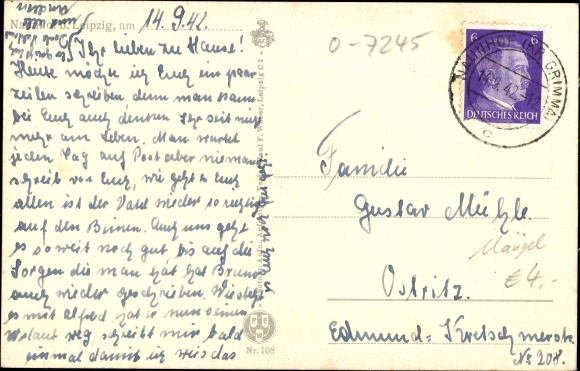 Naunhof b. Leipzig, am 14.9.42.
Ihr lieben zu Hause!
Heute möchte ich Euch ein paar
Zeilen schreiben denn man kann
bei Euch auch denken Ihr seit nicht
mehr am Leben. Man wartet
jeden Tag auf Post aber niemand
schreib von Euch, wie geht es Euch
allen ist der Vater wieder so richtig
auf den Beinen. Auch uns geht
es soweit noch gut bis auf die
Sorgen die man hat hat Bruno
auch wieder geschrieben. Wie steht
es mit Alfred hat er nun seinen
Urlaub weg schreibt mir bald
einmal damit ich weis das
es Euch noch gut geht
Nr. 108
0-7245
6 6
DEUTSCHES REICH
NAUNHOF (BZ. GRIMMA)
c
Familie
Gustav Mühle.
Mängel
€ 4.-
Ostritz.
Edmund-Kretschmerstr.
Nr. 208.